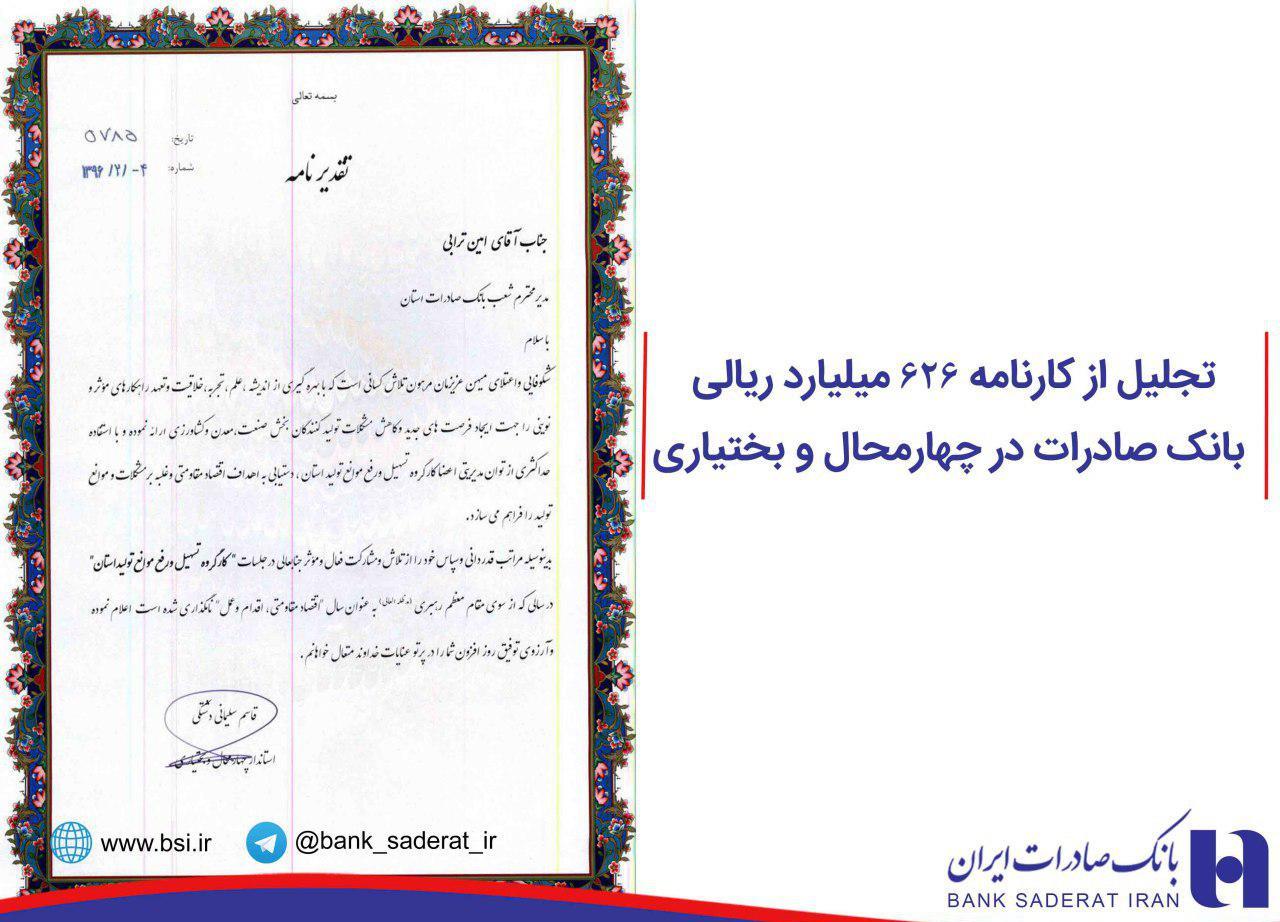 بسمه تعالی
تاریخ: ۵۷۸۵
شماره: ۴ -/۲/ ۱۳۹۶
تقدیر نامه
جناب آقای امین ترابی
مدیر محترم شعب بانک صادرات استان
با سلام
شکوفایی و اعتلای میهن عزیزمان مرهون تلاش کسانی است که با بهره گیری از اندیشه ،علم ،تجربه ،خلاقیت و تعهد راهکارهای مؤثر و
نوینی را جهت ایجاد فرصت های جدید و کاهش مشکلات تولید کنندگان بخش صنعت،معدن و کشاورزی ارائه نموده و با استفاده
حداکثری از توان مدیریتی اعضا کارگروه تسهیل و رفع موانع تولید استان ، دستیابی به اهداف اقتصاد مقاومتی و غلبه بر مشکلات و موانع
تولید را فراهم می سازد.
بدینوسیله مراتب قدردانی و سپاس خود را از تلاش و مشارکت فعال و مؤثر جنابعالی در جلسات "کارگروه تسهیل و رفع موانع تولید استان"
در سالی که از سوی مقام معظم رهبری (مد ظله العالی) به عنوان سال "اقتصاد مقاومتی، اقدام و عمل" نامگذاری شده است اعلام نموده
و آرزوی توفیق روز افزون شما را در پرتو عنایات خداوند متعال خواهانم .
قاسم سلیمانی دشتکی
استاندار چهارمحال و بختیاری
www.bsi.ir
@bank_saderat_ir
تجلیل از کارنامه ۶۲۶ میلیارد ریالی
بانک صادرات در چهارمحال و بختیاری
بانک صادرات ایران
BANK SADERAT IRAN